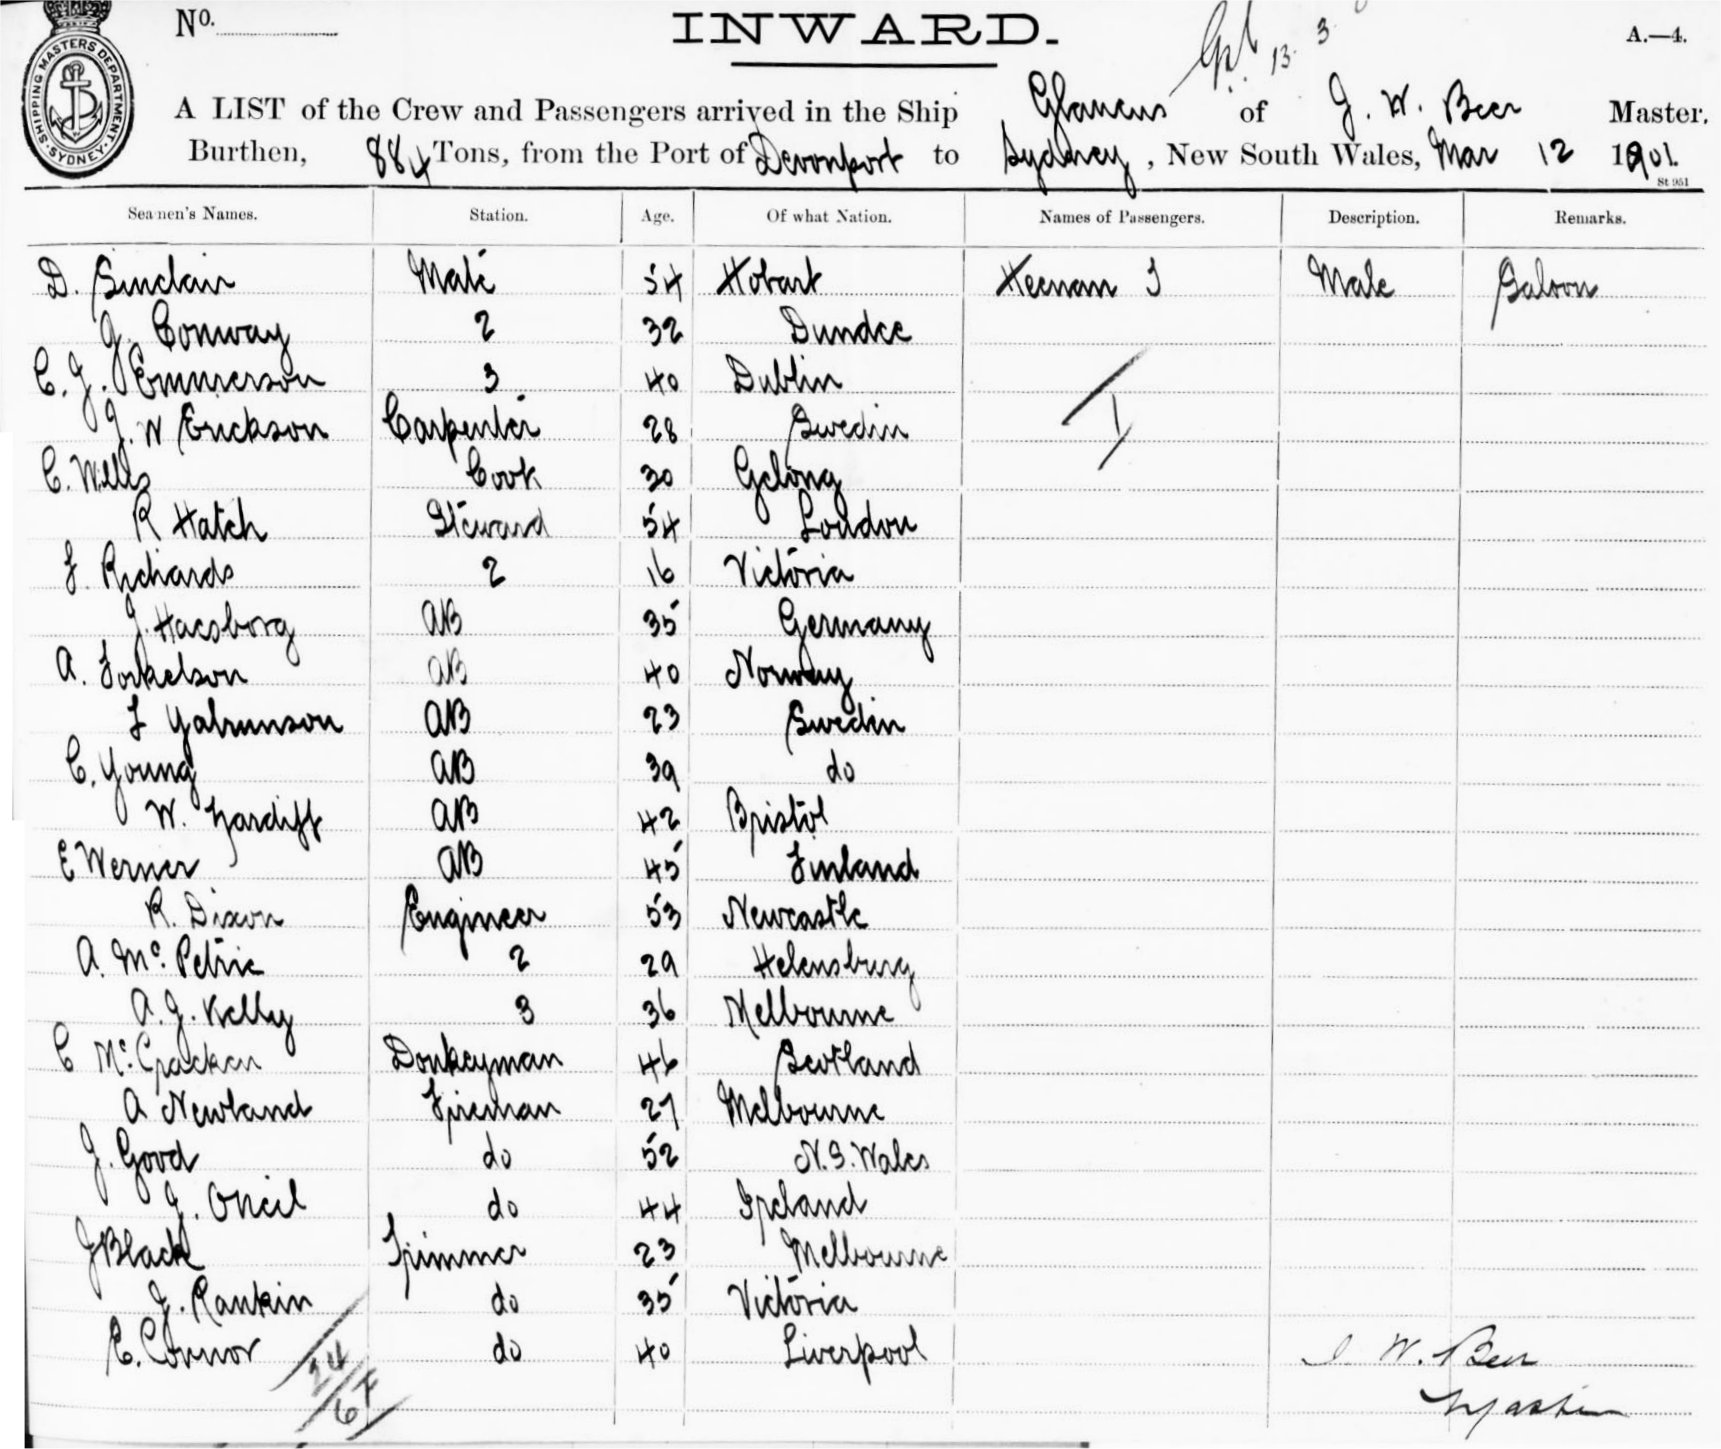 No.
INWARD.
13 3
A.—4.
SHIPPING MASTERS DEPARTMENT. SYDNEY.
A LIST of the Crew and Passengers arrived in the Ship Glaucus of J. W. Beer Master.
Burthen, 884 Tons, from the Port of Devonport to Sydney, New South Wales, Mar 12 1901.
St 951
Seamen's Names. Station. Age. Of what Nation. Names of Passengers. Description. Remarks.
D. Sinclair Mate 54 Hobart Heenam J Male Saloon
J. Conway 2 32 Dundee
C. J. Emmerson 3 40 Dublin
J. W Erickson Carpenter 28 Swedin
C. Wells Cook 30 Gelong
R Hatch Steward 54 London
F. Richards 2 16 Victoria
J. Hacsborg AB 35 Germany
A. Torkelson AB 40 Norway
F AB 23 Swedin
C. Young AB 39 do
W. AB 42 Bristol
E Werner AB 45 Finland
R. Dixon Engineer 53 Newcastle
A. Mc. Petrie 2 29 Helensburg
A. J. Kelly 3 36 Melbourne
C Mc. Cracken Donkeyman 46 Scotland
A Newland Fireman 27 Melbourne
J. Good do 52 N. S. Wales
J. ONeil do 44 Ireland
J Black Trimmer 23 Melbourne
J. Rankin do 35 Victoria
E. Connor do 40 Liverpool
24
67
J W. Beer
Master